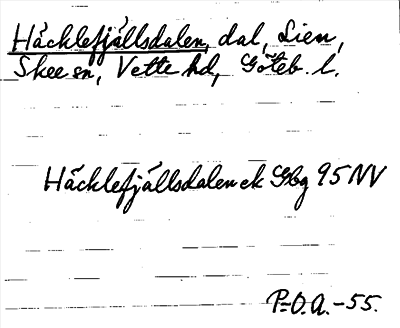 Häcklefjällsdalen, dal, Lien,
Skee sn, Vette hd, Göteb. l.
Häcklefjällsdalen ek Gbg 95 NV
P-O.A. -55.